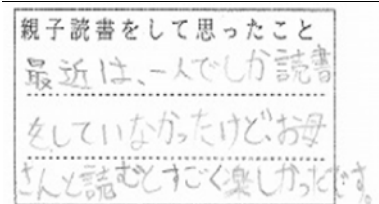 親子読書をして思ったこと
最近は、一人でしか読書
をしていなかったけど、お母
さんと読むとすごく楽しかったです。